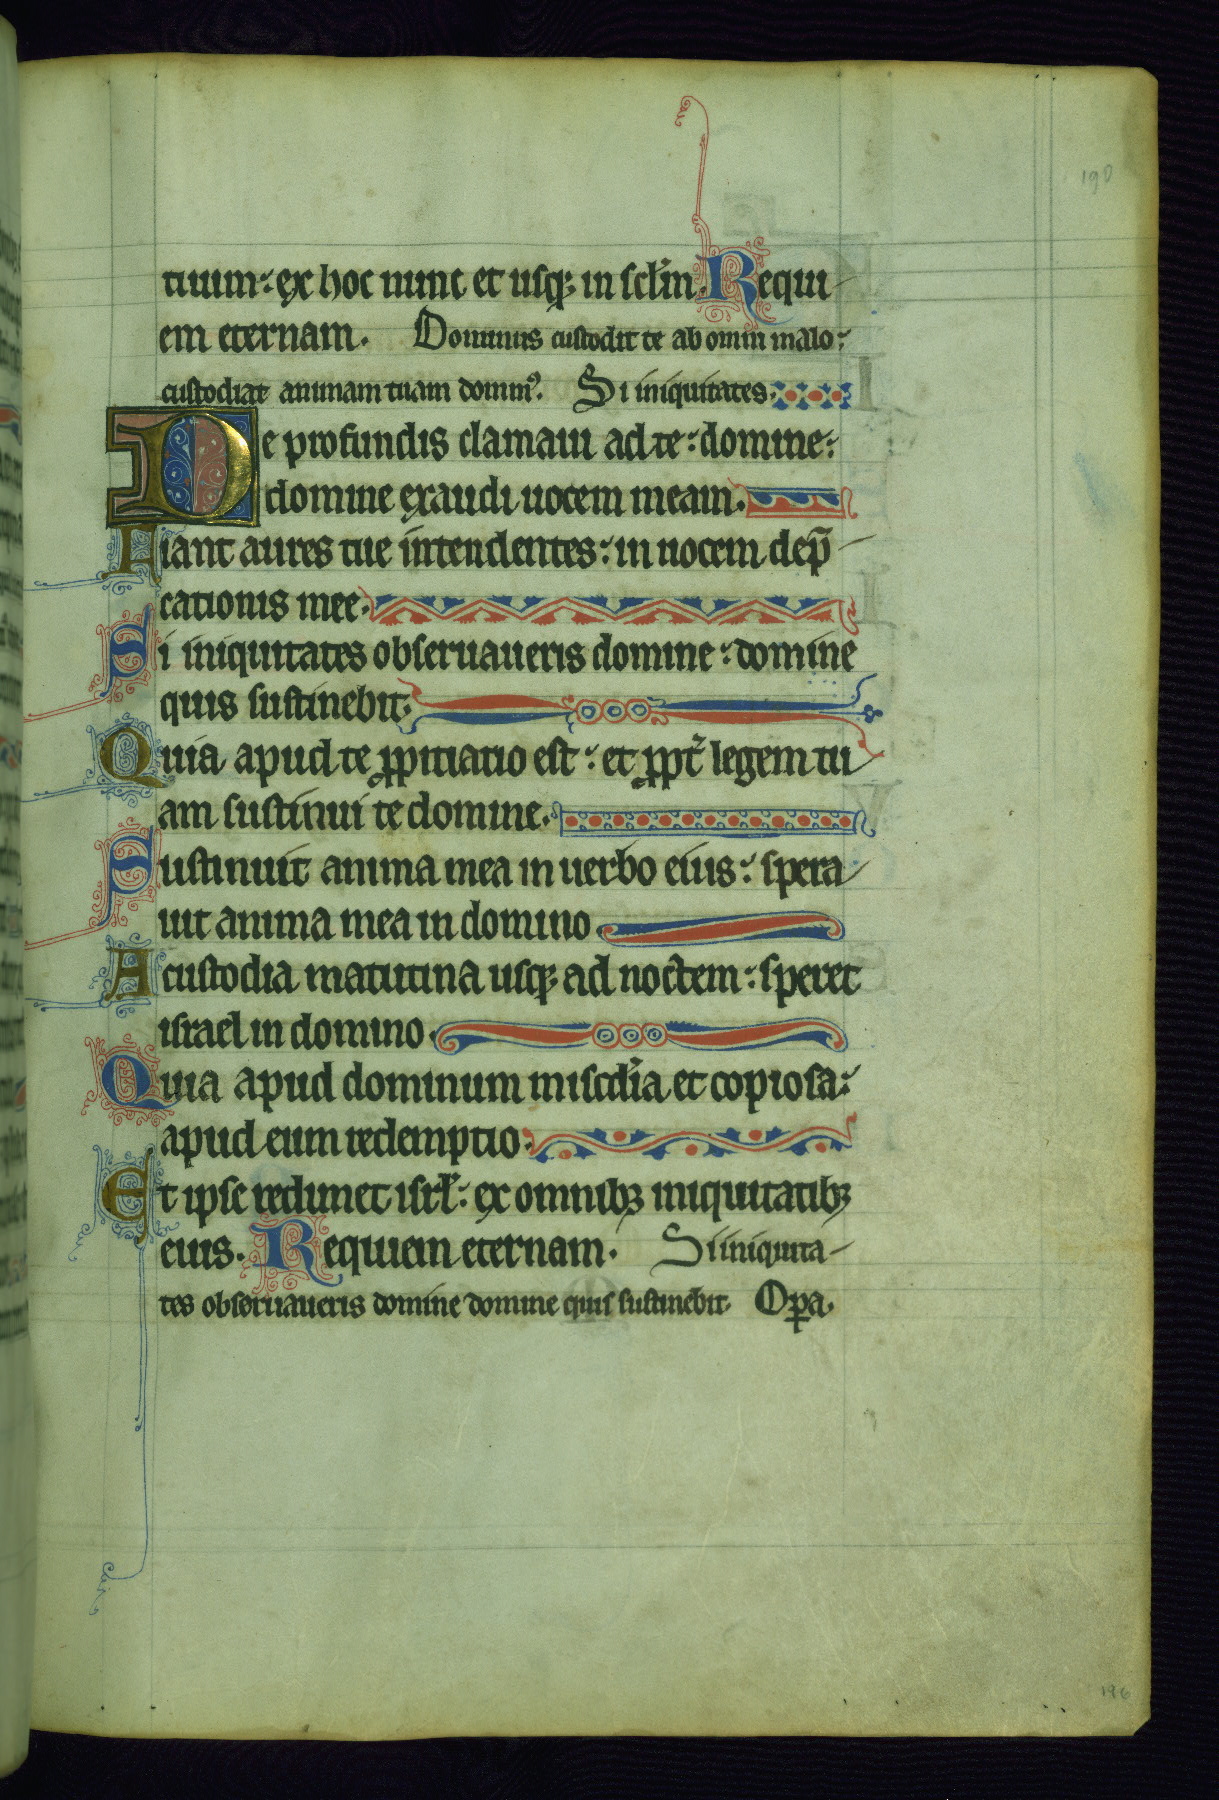 190
tuum: ex hoc nunc et usq; in sclm. Requi
em eternam. Dominus custodit te ab omni malo:
custodiat animam tuam domin⁹. Si iniquitates.
De profundis clamaui ad te: domine:
domine exaudi uocem meam.
Fiant aures tue intendentes: in uocem dep̄
cationis mee.
Si iniquitates obseruaueris domine: domine
quis sustinebit.
Quia apud te ꝓpitiatio est: et ꝓpt̄ legem tu
am sustinui te domine.
Sustinuit anima mea in uerbo eius: spera
uit anima mea in domino
A custodia matutina usq; ad noctem: speret
israel in domino.
Quia apud dominum misc̄dia et copiosa:
apud eum redemptio.
Et ipse redimet isrl̄: ex omnibꝫ iniquitatibꝫ
eius. Requiem eternam. Si iniquita
tes obseruaueris domine domine quis sustinebit. Oꝑa.
196